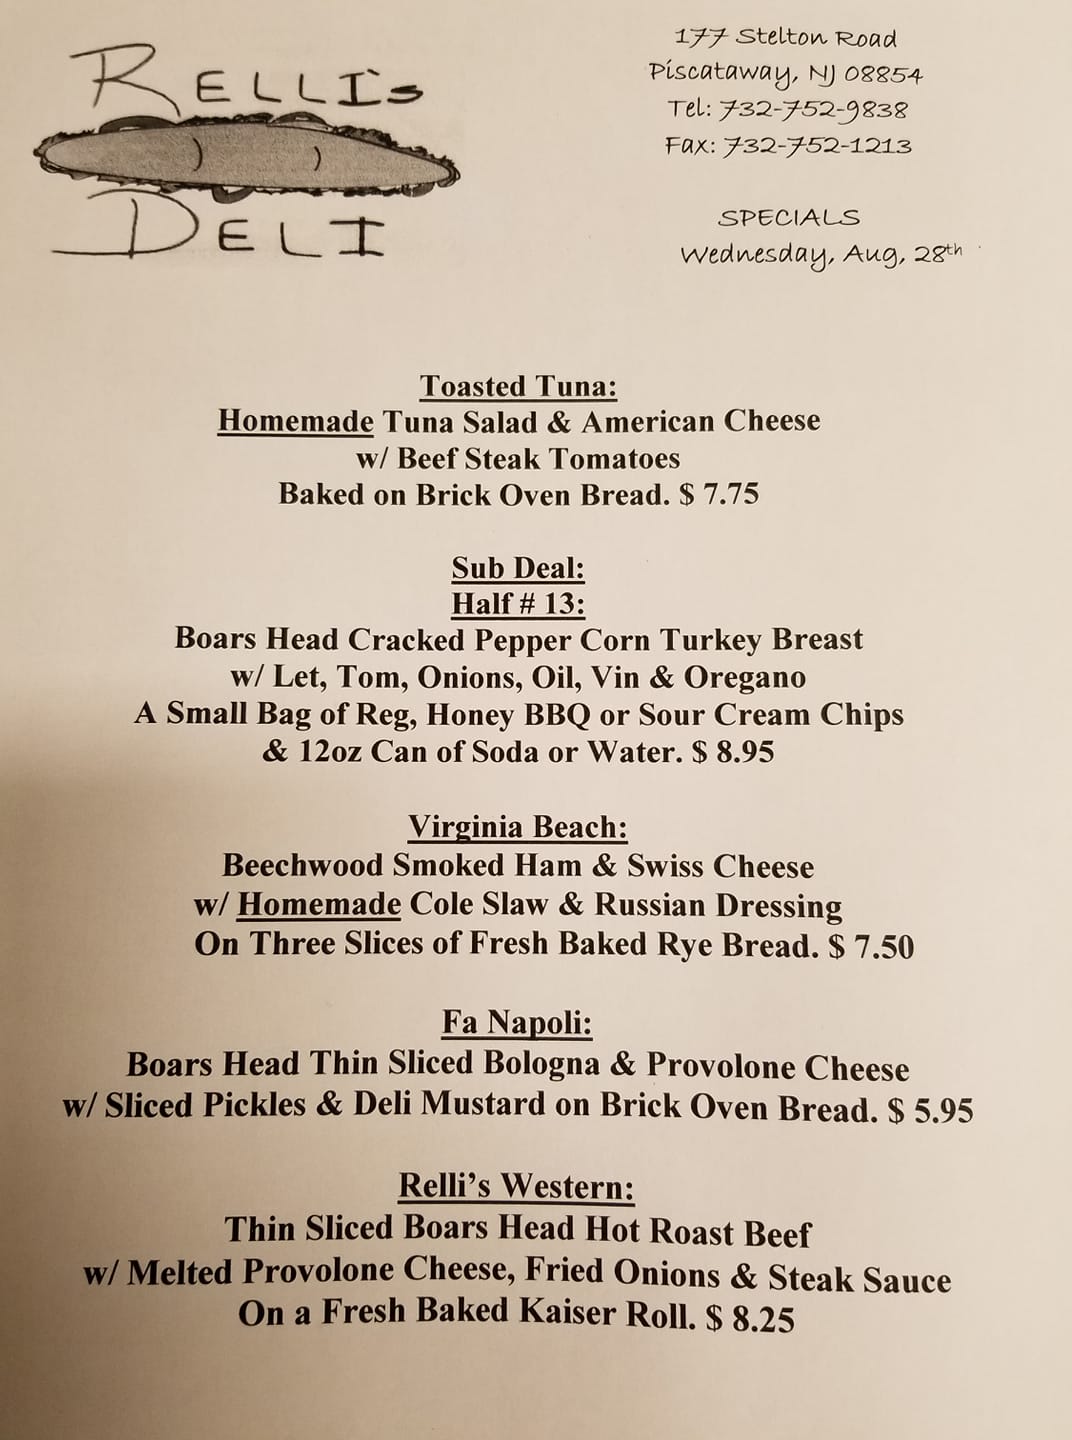 RELLI'S
DELI
177 Stelton Road
Piscataway, NJ 08854
Tel: 732-752-9838
Fax: 732-752-1213
SPECIALS
Wednesday, Aug, 28th
Toasted Tuna:
Homemade Tuna Salad & American Cheese
w/ Beef Steak Tomatoes
Baked on Brick Oven Bread. $ 7.75
Sub Deal:
Half # 13:
Boars Head Cracked Pepper Corn Turkey Breast
w/ Let, Tom, Onions, Oil, Vin & Oregano
A Small Bag of Reg, Honey BBQ or Sour Cream Chips
& 12oz Can of Soda or Water. $ 8.95
Virginia Beach:
Beechwood Smoked Ham & Swiss Cheese
w/ Homemade Cole Slaw & Russian Dressing
On Three Slices of Fresh Baked Rye Bread. $ 7.50
Fa Napoli:
Boars Head Thin Sliced Bologna & Provolone Cheese
w/ Sliced Pickles & Deli Mustard on Brick Oven Bread. $ 5.95
Relli’s Western:
Thin Sliced Boars Head Hot Roast Beef
w/ Melted Provolone Cheese, Fried Onions & Steak Sauce
On a Fresh Baked Kaiser Roll. $ 8.25